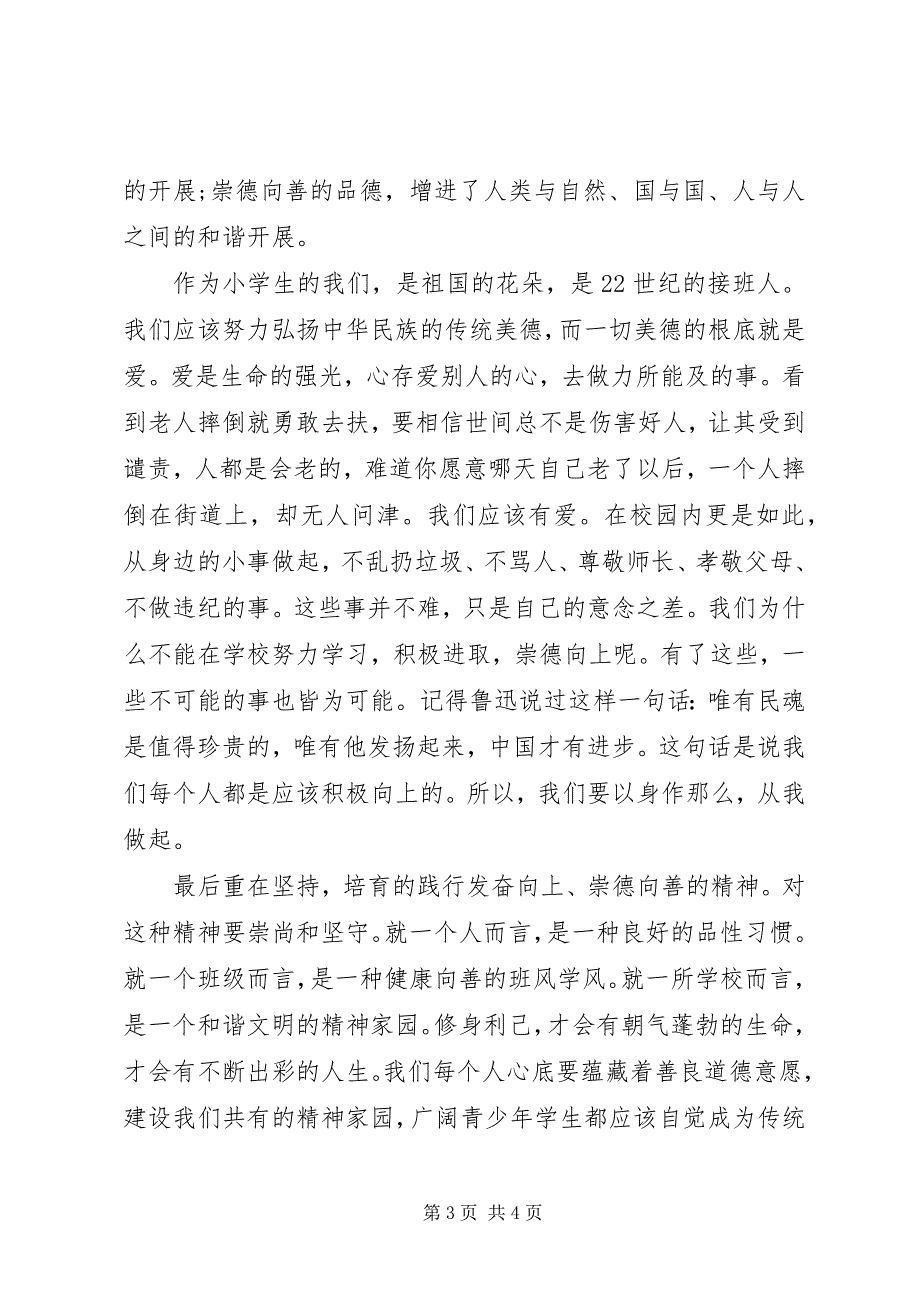 的开展;崇德向善的品德，增进了人类与自然、国与国、人与人
之间的和谐开展。
作为小学生的我们，是祖国的花朵，是 22 世纪的接班人。
我们应该努力弘扬中华民族的传统美德,而一切美德的根底就是
爱。爱是生命的强光，心存爱别人的心，去做力所能及的事。看
到老人摔倒就勇敢去扶，要相信世间总不是伤害好人，让其受到
谴责，人都是会老的，难道你愿意哪天自己老了以后，一个人摔
倒在街道上，却无人问津。我们应该有爱。在校园内更是如此，
从身边的小事做起，不乱扔垃圾、不骂人、尊敬师长、孝敬父母、
不做违纪的事。这些事并不难，只是自己的意念之差。我们为什
么不能在学校努力学习，积极进取，崇德向上呢。有了这些，一
些不可能的事也皆为可能。记得鲁迅说过这样一句话：唯有民魂
是值得珍贵的，唯有他发扬起来，中国才有进步。这句话是说我
们每个人都是应该积极向上的。所以，我们要以身作那么，从我
做起。
最后重在坚持，培育的践行发奋向上、崇德向善的精神。对
这种精神要崇尚和坚守。就一个人而言，是一种良好的品性习惯。
就一个班级而言，是一种健康向善的班风学风。就一所学校而言，
是一个和谐文明的精神家园。修身利己，才会有朝气蓬勃的生命，
才会有不断出彩的人生。我们每个人心底要蕴藏着善良道德意愿，
建设我们共有的精神家园，广阔青少年学生都应该自觉成为传统
第 3 页 共 4 页